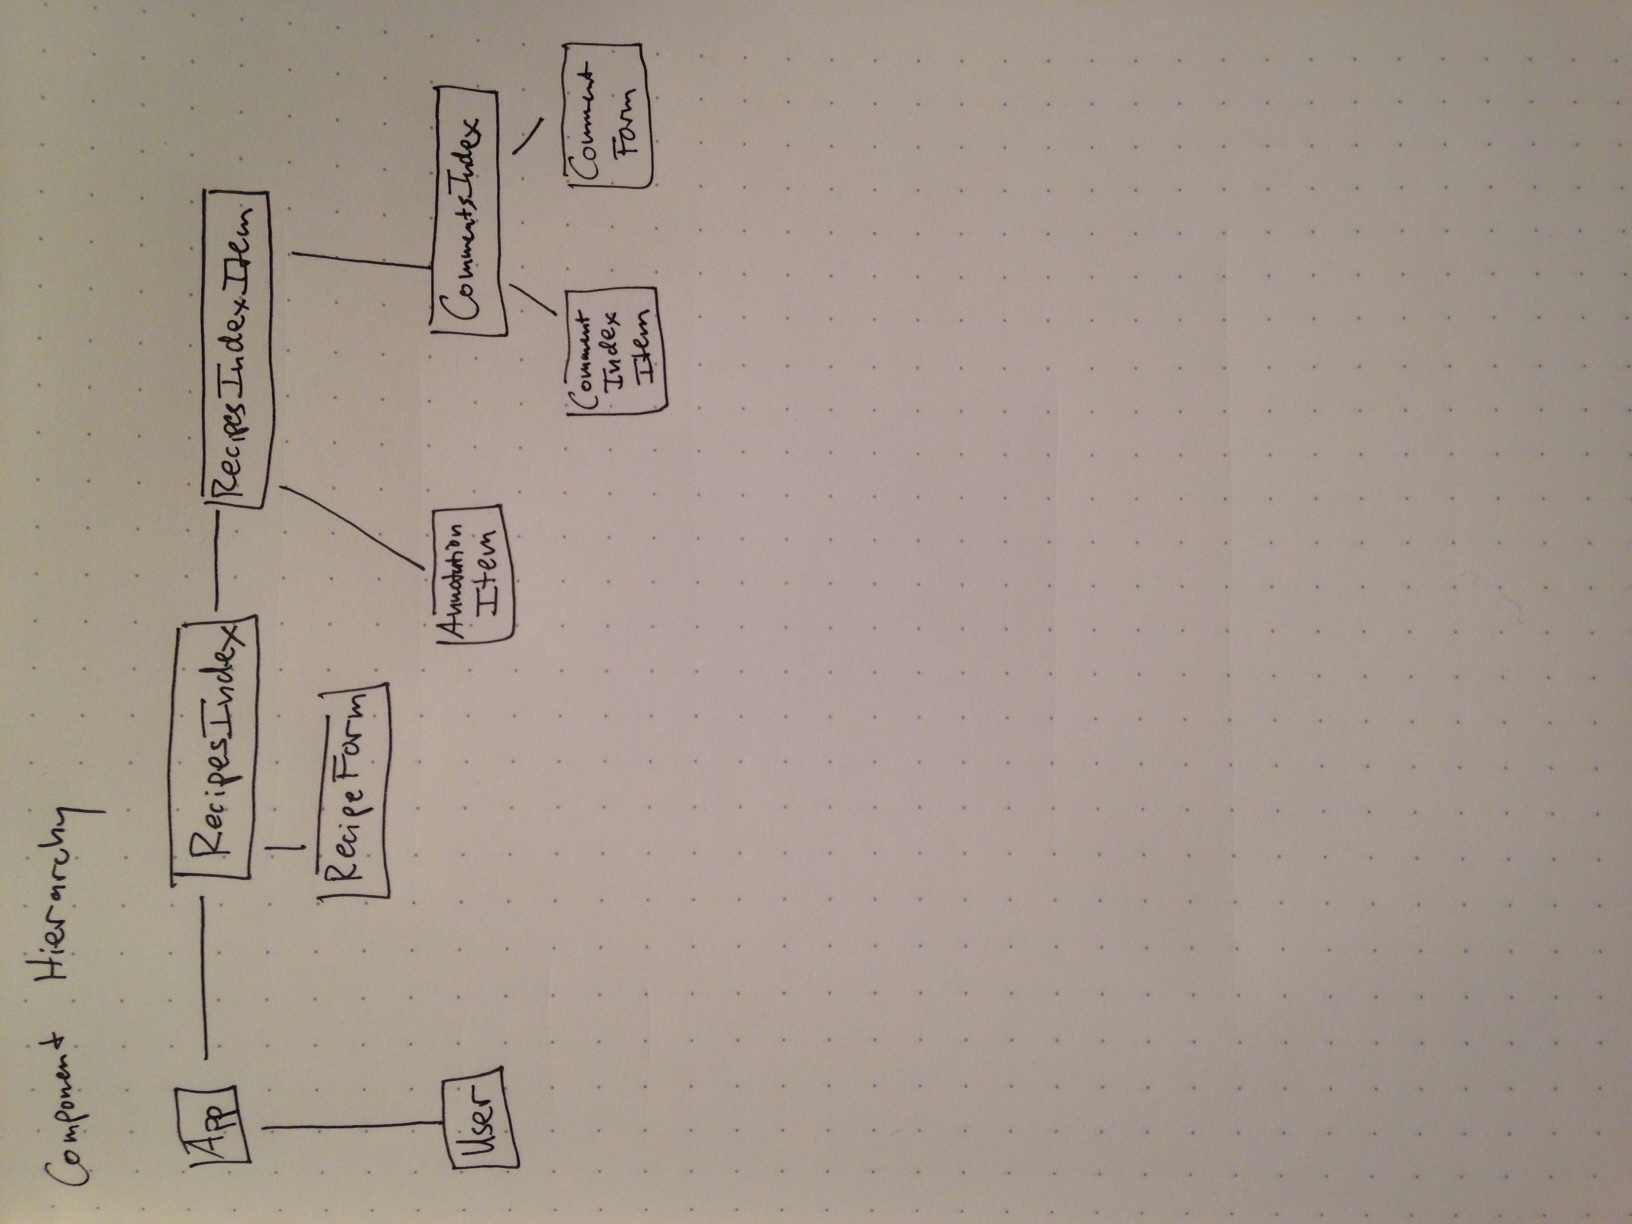 Component Hierarchy
App
RecipesIndex
RecipesIndexItem
RecipeForm
User
Annotation
Item
CommentsIndex
Comment
Index
Item
Comment
Form